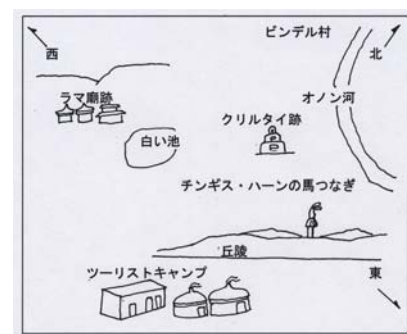 ビンデル村
西
北
ラマ廟跡
オノン河
クリルタイ跡
白い池
チンギス・ハーンの馬つなぎ
丘陵
ツーリストキャンプ
東